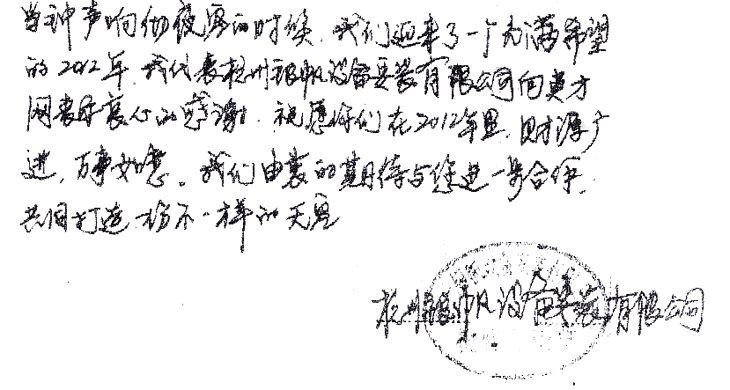 当钟声响彻夜空的时候，我们迎来了一个充满希望
的2012年，我代表杭州银帆设备安装有限公司向英才
网表示衷心的感谢，祝愿你们在2012年里，财源广
进，万事如意。我们由衷的期待与您进一步合作，
共同打造一份不一样的天空
杭州银帆设备安装有限公司